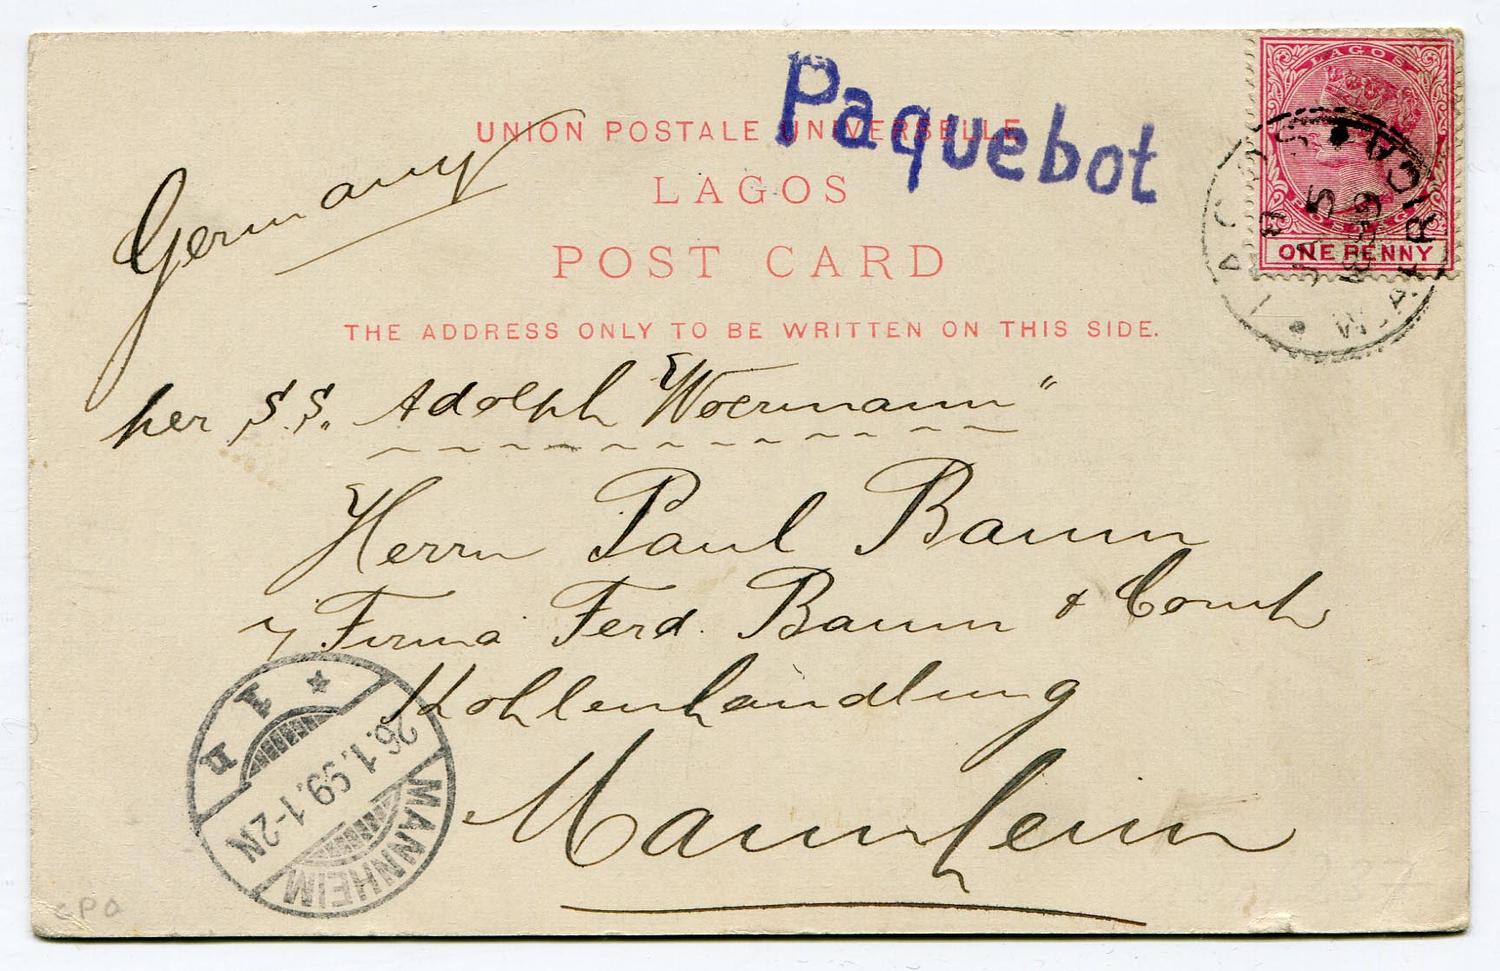 Paquebot
UNION POSTALE UNIVERSELLE
LAGOS
POST CARD
THE ADDRESS ONLY TO BE WRITTEN ON THIS SIDE.
LAGOS
POSTAGE
ONE PENNY
LAGOS W. AFRICA
Germany
per S.S. Adolph Woermann"
Herrn Paul Baum
Firma Ferd. Baum &
Kohlenhandlung
Mannheim
MANNHEIM
26.1.99.1-2N
CPA